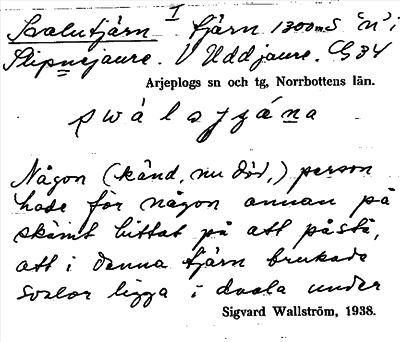 Svalutjärn I tjärn 1300 m S "n" i
Slipnejaure. V Uddjaure. G 34
Arjeplogs sn och tg, Norrbottens län.
swálojjána
Någon (känd, nu död,) person
hade för någon annan på
skämt hittat på att påstå,
att i denna tjärn brukade
svalor ligga i dvala under
Sigvard Wallström, 1938.